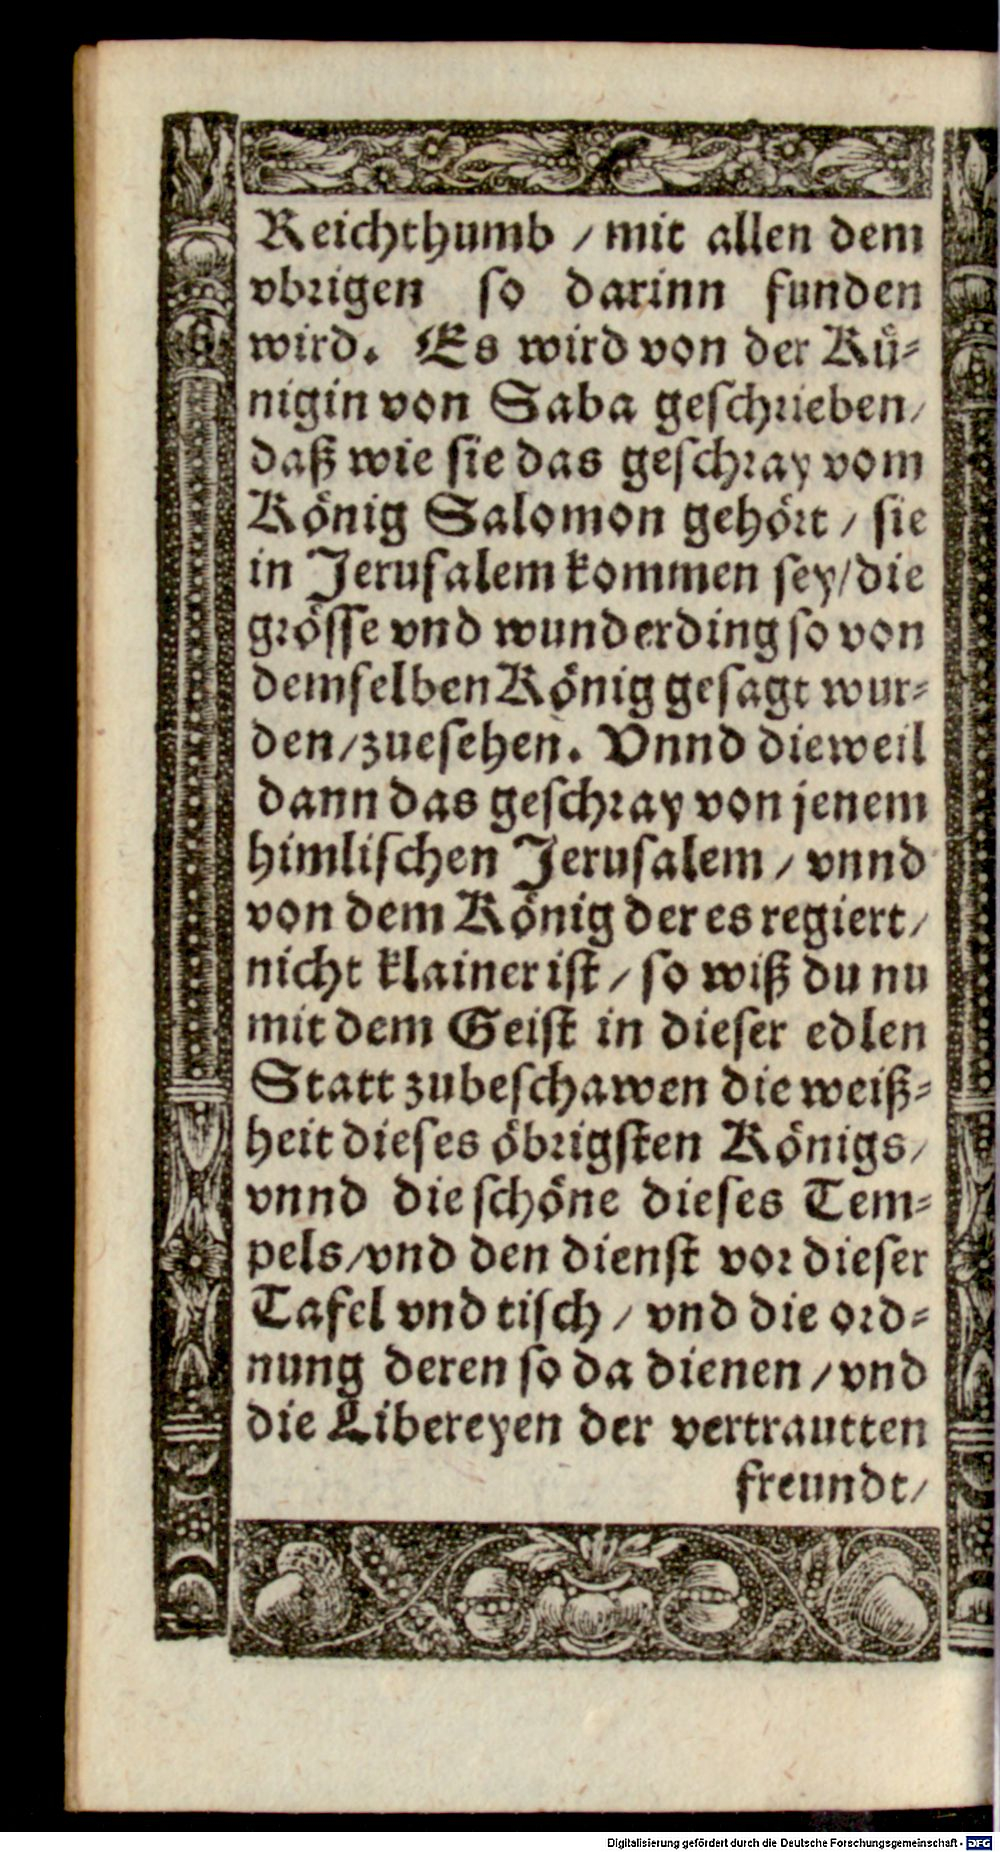 Reichthumb / mit allen dem
vbrigen so darinn funden
wird. Es wird von der Kuͤ-
nigin von Saba geschrieben/
daß wie sie das geschray vom
König Salomon gehört / sie
in Jerusalem kommen sey/die
grösse vnd wunderding so von
demselben König gesagt wur-
den/zuesehen. Vnnd dieweil
dann das geschray von jenem
himlischen Jerusalem / vnnd
von dem König der es regiert/
nicht klainer ist / so wiß du nu
mit dem Geist in dieser edlen
Statt zubeschawen die weiß-
heit dieses öbrigsten Königs/
vnnd die schöne dieses Tem-
pels/vnd den dienst vor dieser
Tafel vnd tisch / vnd die ord-
nung deren so da dienen / vnd
die Libereyen der vertrautten
freundt/
Digitalisierung gefördert durch die Deutsche Forschungsgemeinschaft - DFG